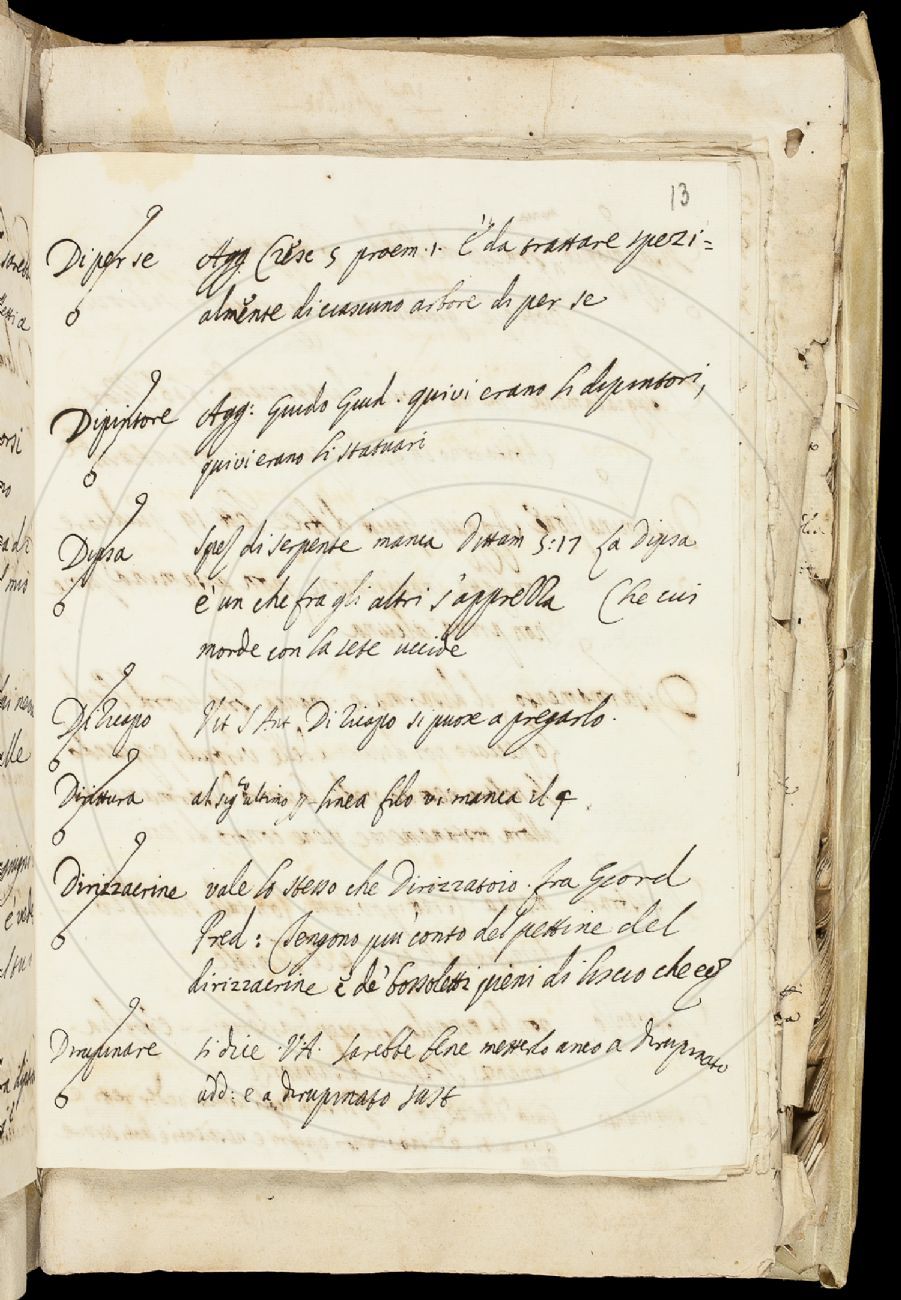 13
Di per se Agg. Crẽse 5 proem. 1. È da trattare spezi=
almẽnte di ciascuno arbore di per se
Dipintore Agg: Guido Giud. quivi erano li dipintori,
quivi erano li statuari
Dipsa spez di serpente manca Dittam 5:17 La Dipsa
è un che fra gli altri s'apprella Che cui
morde con la sete uccide
Di ricapo Vit S Ant. Di ricapo si puore a pregarlo.
Dirittura al sig.º ultimo linea filo vi manca il
Dirizzacrine vale lo stesso che Dirizzatoio. fra Giord
Pred: Tengono più conto del pettine del
dirizzacrine e de' bossoletti pieni di liscio che
Dirupinare si dice VA. sarebbe bene metterlo anco a dirupinato
add: e a dirupinato sust